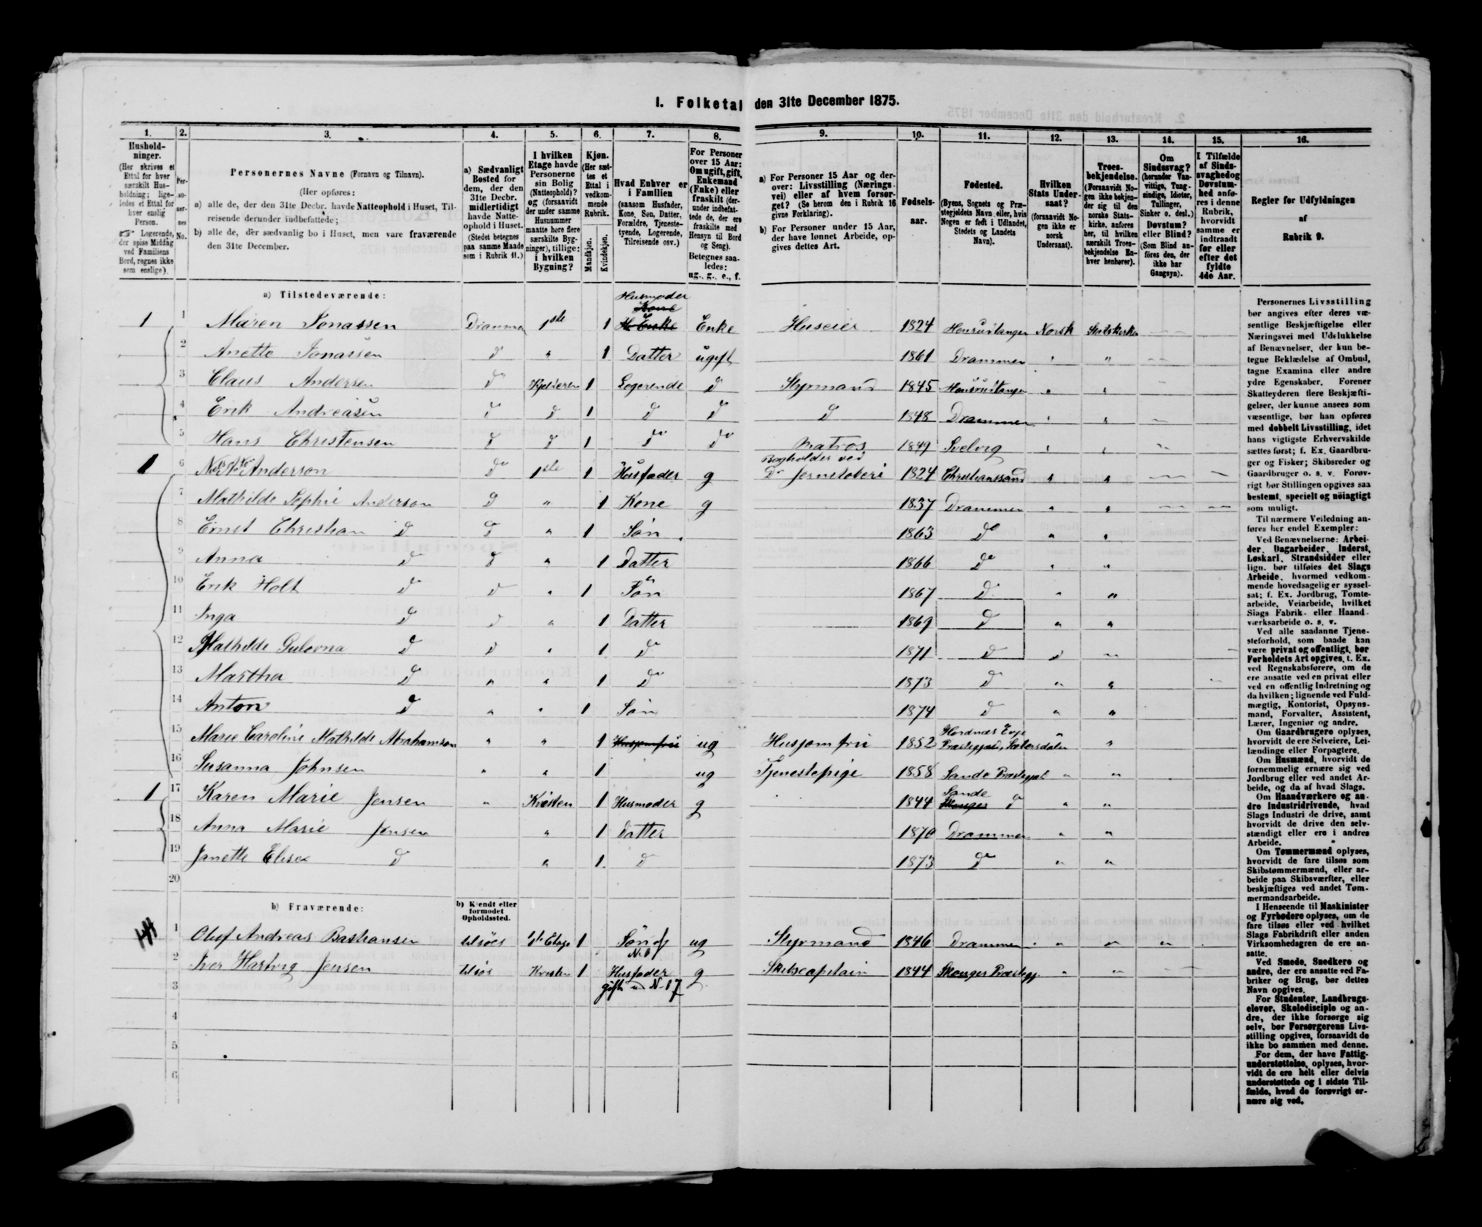 1. Folketal den 31te December 1875.
1. 2. 3. 4. 5. 6. 7. 8. 9. 10. 11. 12. 13. 14. 15. 16.
Husholdninger. (Her skrives et Ettal for hver særskilt Husholdning; ligeledes et Ettal for hver enslig Person. Logerende, der spise Middag ved Familiens Bord, regnes ikke som enslige).
Personernes No.
Personernes Navne (Fornavn og Tilnavn).
(Her opføres:
a) alle de, der den 31te Decbr. havde Natteophold i Huset, Tilreisende derunder indbefattede;
b) alle de, der sædvanlig bo i Huset, men vare fraværende den 31te December.
a) Sædvanligt Bosted for dem, der den 31te Decbr. midlertidigt havde Natteophold i Huset. (Stedet betegnes paa samme Maade som i Rubrik 11.)
I hvilken Etage havde Personerne sin Bolig (Natteophold)? og (forsaavidt der under samme Husnummer maatte høre flere særskilte Bygninger), tillige: i hvilken Bygning?
Kjøn. (Her sættes et Ettal i vedkommende Rubrik.
Mandkjøn. Kvindekjøn.
Hvad Enhver er i Familien (saasom Husfader, Kone, Søn, Datter, Forældre, Tjenestetyende, Logerende, Tilreisende osv.)
For Personer over 15 Aar: Om ugift, gift, Enkemand (Enke) eller fraskilt (derunder indbefattede de, der ere fraskilte med Hensyn til Bord og Seng). Betegnes saaledes: ug., g., e., f.
a) For Personer 15 Aar og derover: Livsstilling (Næringsvei) eller af hvem forsørget? (Se herom den i Rubrik 16 givne Forklaring).
b) For Personer under 15 Aar, der have lønnet Arbeide, opgives dettes Art.
Fødselsaar.
Fødested. (Byens, Sognets og Præstegjeldets Navn eller, hvis Nogen er født i Udlandet, Stedets og Landets Navn).
Hvilken Stats Undersaat? (forsaavidt Nogen ikke er norsk Undersaat).
Troesbekjendelse. (Forsaavidt Nogen ikke bekjender sig til den norske Statskirke, anføres her, til hvilken særskilt Troesbekjendelse Enhver henhører).
Om Sindssvag? (herunder Vanvittige, Tungsindige, Idioter, Tullinger, Sinker o. desl.) Døvstum? eller Blind? (Som Blind anføres den, der ikke har Gangsyn).
I Tilfælde af Sindssvaghed og Døvstumhed anføres i denne Rubrik, hvorvidt samme er indtraadt før eller efter det fyldte 4de Aar.
Regler for Udfyldningen af Rubrik 9.
a) Tilstedeværende:
Husmoder
Kone
1 1 Maren Jonassen Dramm 1ste 1 Enke Huseier 1824 Norsk Statskirke
2 Anette Jonassen D " 1 Datter ugift 1861 Drammen " "
3 Claus Andersen D 1 Logerende D Styrmand 1845 " "
4 Erik Andreasen D D 1 D D D 1848 Drammen " "
5 Hans Christensen D D 1 Do Do Matros 1849 Svelvig " "
Bogholder ved
1 6 Anderson Do 1ste 1 Husfader g 1824 Christianssand " "
7 Mathilde Sophie Anderson D " 1 Kone g 1837 Drammen " "
8 Ernst Christian D D " 1 Søn 1863 Do " "
9 Anna D D " 1 Datter 1866 Do " "
10 Erik Holt D D " 1 Søn 1867 D " "
11 Inga D D " 1 Datter 1869 D " "
12 Mathilde Gulovna D D " 1 D 1871 D " "
13 Martha D " " 1 D 1873 D " "
14 Anton D " " 1 Søn 1874 D " "
15 Marie Caroline Mathilde Abrahamson " " 1 Husjomfru ug Husjomfru 1852 Hordnæs Evje Præstegjæl, Sætersdalen " "
16 Susanna Johnsen " " 1 ug Tjenestepige 1858 Sande Præstegjel " "
1 17 Karen Marie Jensen " Kvisten 1 Husmoder g 1844 Sande Skouger D " "
18 Anna Marie Jensen " 1 Datter 1870 Drammen " "
19 Janette Elise D " 1 D 1873 Do " "
20
b) Fraværende:
b) Kjendt eller formodet Opholdssted.
1 Oluf Andreas Basthansen tilsøes 1ste Etage 1 Søn af No 6 ug Styrmand 1846 Drammen " "
2 Iver Hartvig Jensen tilsøe Kvisten 1 Husfader gift m No 17 g Skibscaptain 1844 Skouger Præstegj " "
3
4
5
6
Personernes Livsstilling bør angives efter deres væsentlige Beskjæftigelse eller Næringsvei med Udelukkelse af Benævnelser, der kun betegne Beklædelse af Ombud, tagne Examina eller andre ydre Egenskaber. Forener Skatteyderen flere Beskjæftigelser, der kunne ansees som væsentlige, bør han opføres med dobbelt Livsstilling, idet hans vigtigste Erhvervskilde sættes først; f. Ex. Gaardbruger og Fisker; Skibsreder og Gaardbruger o. s. v. Forøvrigt bør Stillingen opgives saa bestemt, specielt og nøiagtigt som muligt.
Til nærmere Veiledning anføres her endel Exempler:
Ved Benævnelserne: Arbeider, Dagarbeider, Inderst, Løskarl, Strandsidder eller lign. bør tilføies det Slags Arbeide, hvormed vedkommende hovedsagelig er sysselsat; f. Ex. Jordbrug, Tomtearbeide, Veiarbeide, hvilket Slags Fabrik- eller Haandværksarbeide o. s. v.
Ved alle saadanne Tjenesteforhold, som baade kan være privat og offentligt, bør Forholdets Art opgives, t. Ex. ved Regnskabsførere, om de ere ansatte ved en privat eller ved en offentlig Indretning og da hvilken; lignende ved Fuldmægtig, Kontorist, Opsynsmand, Forvalter, Assistent, Lærer, Ingeniør og andre.
Om Gaardbrugere oplyses, hvorvidt de ere Selveiere, Leilændinge eller Forpagtere.
Om Husmænd, hvorvidt de fornemmelig ernære sig ved Jordbrug eller ved andet Arbeide, og da af hvad Slags.
Om Haandværkere og andre Industridrivende, hvad Slags Industri de drive, samt hvorvidt de drive den selvstændigt eller ere i andres Arbeide.
Om Tømmermænd oplyses, hvorvidt de fare tilsøs som Skibstømmermænd, eller arbeide paa Skibsværfter, eller beskjæftiges ved andet Tømmermandsarbeide.
I Henseende til Maskinister og Fyrbødere oplyses, om de fare tilsøs eller ved hvilket Slags Fabrikdrift eller anden Virksomhedsgren de ere ansatte.
Ved Smede, Snedkere og andre, der ere ansatte ved Fabriker og Brug, bør dettes Navn opgives.
For Studenter, Landbrugselever, Skoledisciple og andre, der ikke forsørge sig selv, bør Forsørgerens Livsstilling opgives, forsaavidt de ikke bo sammen med denne.
For dem, der have Fattigunderstøttelse, oplyses, hvorvidt de ere helt eller delvis understøttede og i sidste Tilfælde, hvad de forøvrigt ernære sig ved.